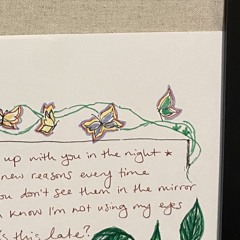 up with you in the night *
new reasons every time
you don't see them in the mirror
know I'm not using my eyes
this late?